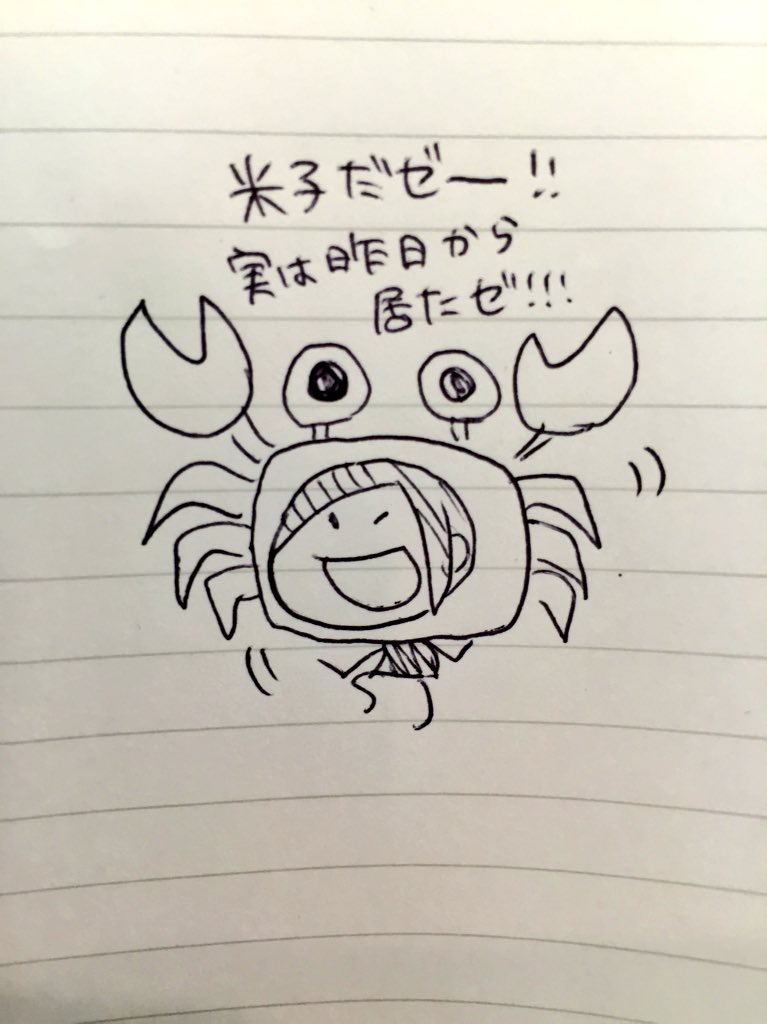 米子だゼー!!
実は昨日から
居たゼ!!!